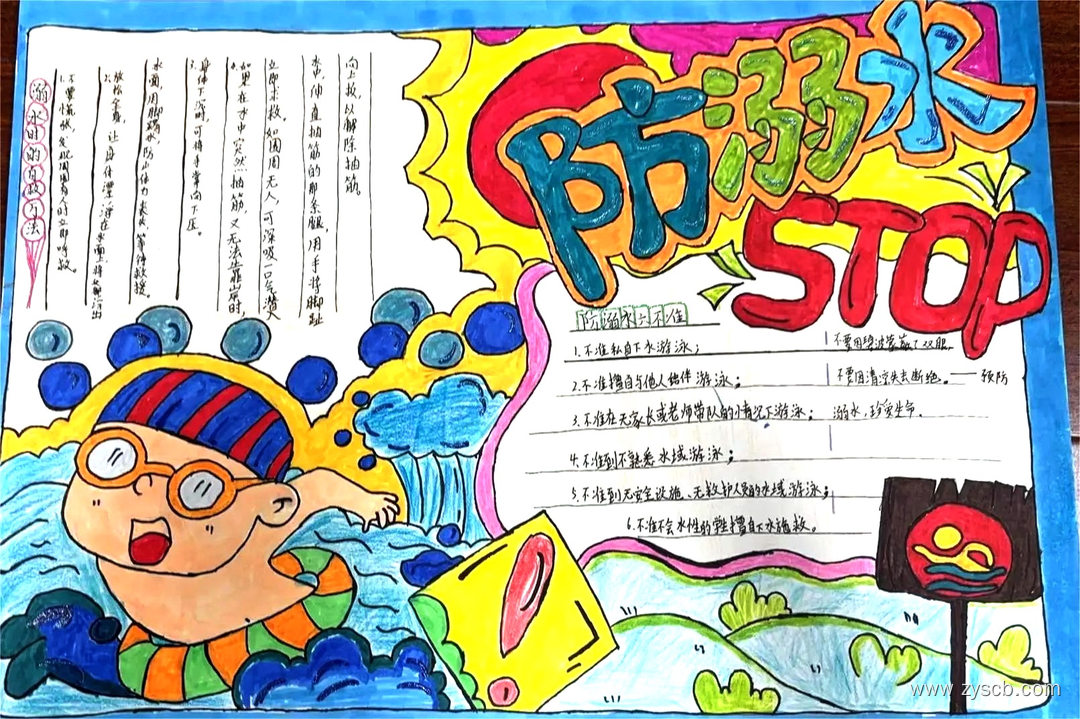 防溺水
STOP
溺水时的自救方法
1.不要慌张,发现周围有人时立即呼救。
2.放松全身,让身体漂浮在水面上,将头部浮出
水面,用脚踢水,防止体力丧失,等待救援。
3.身体下沉时,可将手掌向下压。
4.如果在水中突然抽筋,又无法靠岸时,
立即求救。如周围无人,可深吸一口气潜入
水中,伸直抽筋的那条腿,用手将脚趾
向上扳,以解除抽筋。
防溺水六不准
1.不准私自下水游泳;
2.不准擅自与他人结伴游泳;
3.不准在无家长或老师带队的情况下游泳;
4.不准到不熟悉水域游泳;
5.不准到无安全设施、无救护人员的水域游泳;
6.不准不会水性的 擅自下水施救。
不要用碧波蒙蔽了双眼,
不要因清凉失去断绝。——预防
溺水,珍爱生命。
www.zyscb.com